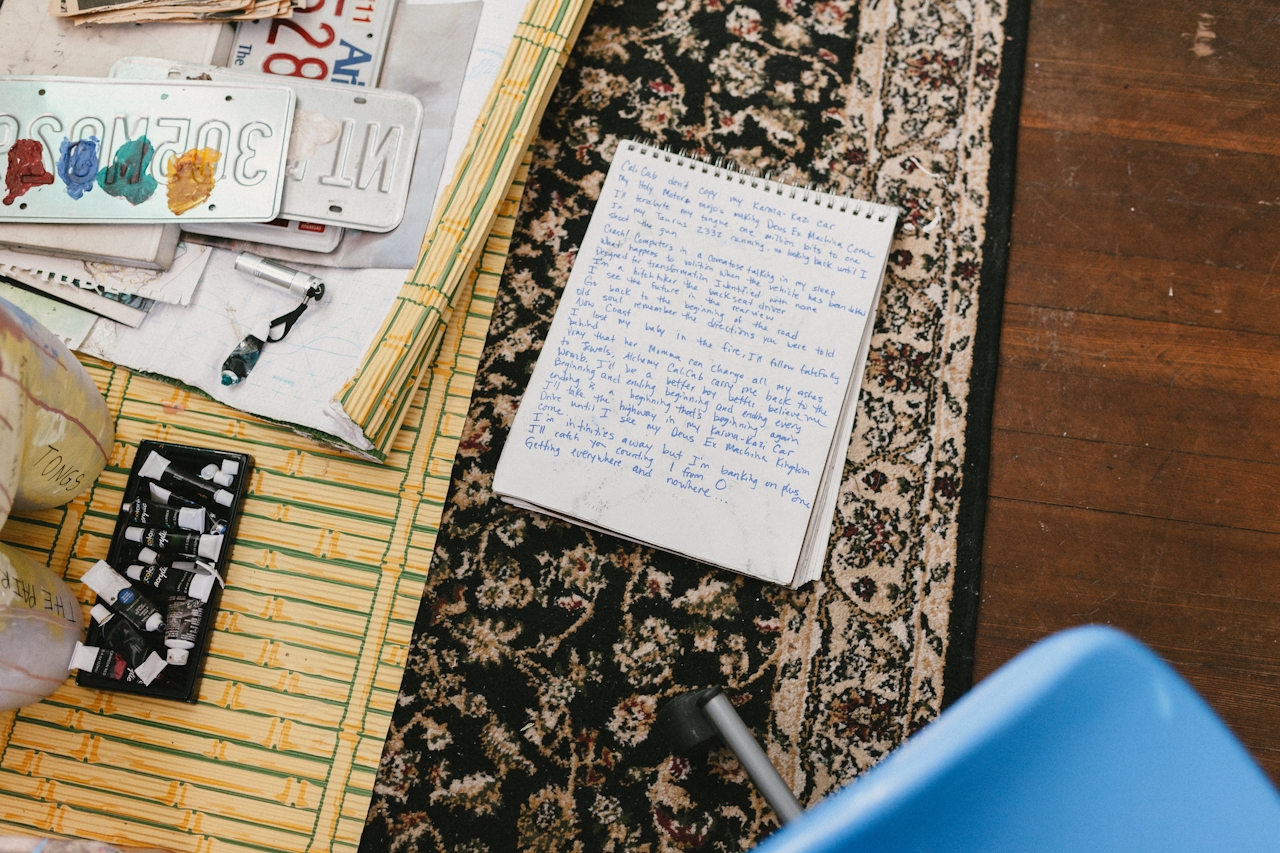 11
528
The
Ari
305
NT
Cal.Cab don't copy my Karma-Kazi car
My Holy Motors majors making Deus Ex Machina Come
I'll terabyte my tongue one million bits to one
In my Taurus 2332 running, no looking back until I
shoot the gun
Crash! Computers in a comatose talking in my sleep
What happens to volition when the vehicle has been
Designed for transformation Identified with none
I'm a hitchhiker the backseat driver
I see the future in the rearview
Go back to the beginning of the road
Old soul remember the directions you were told
Now Coast
I lose my baby in the fire, I'll follow faithfully
behind
Pray that her Momma can change all my ashes
to Jewels, Alchemy Cal.Cab carry me back to the
Womb, I'll be a better boy better believe me
Beginning and ending beginning and ending every
ending is a beginning that's beginning again
I'll take the highway in my Karma-Kazi Car
Drive until I see my Deus Ex Machina Kingdom
come
I'm infinities away but I'm banking on plus one
I'll catch you counting 1 from 0
Getting everywhere and nowhere...
TONGS
THE PAIR